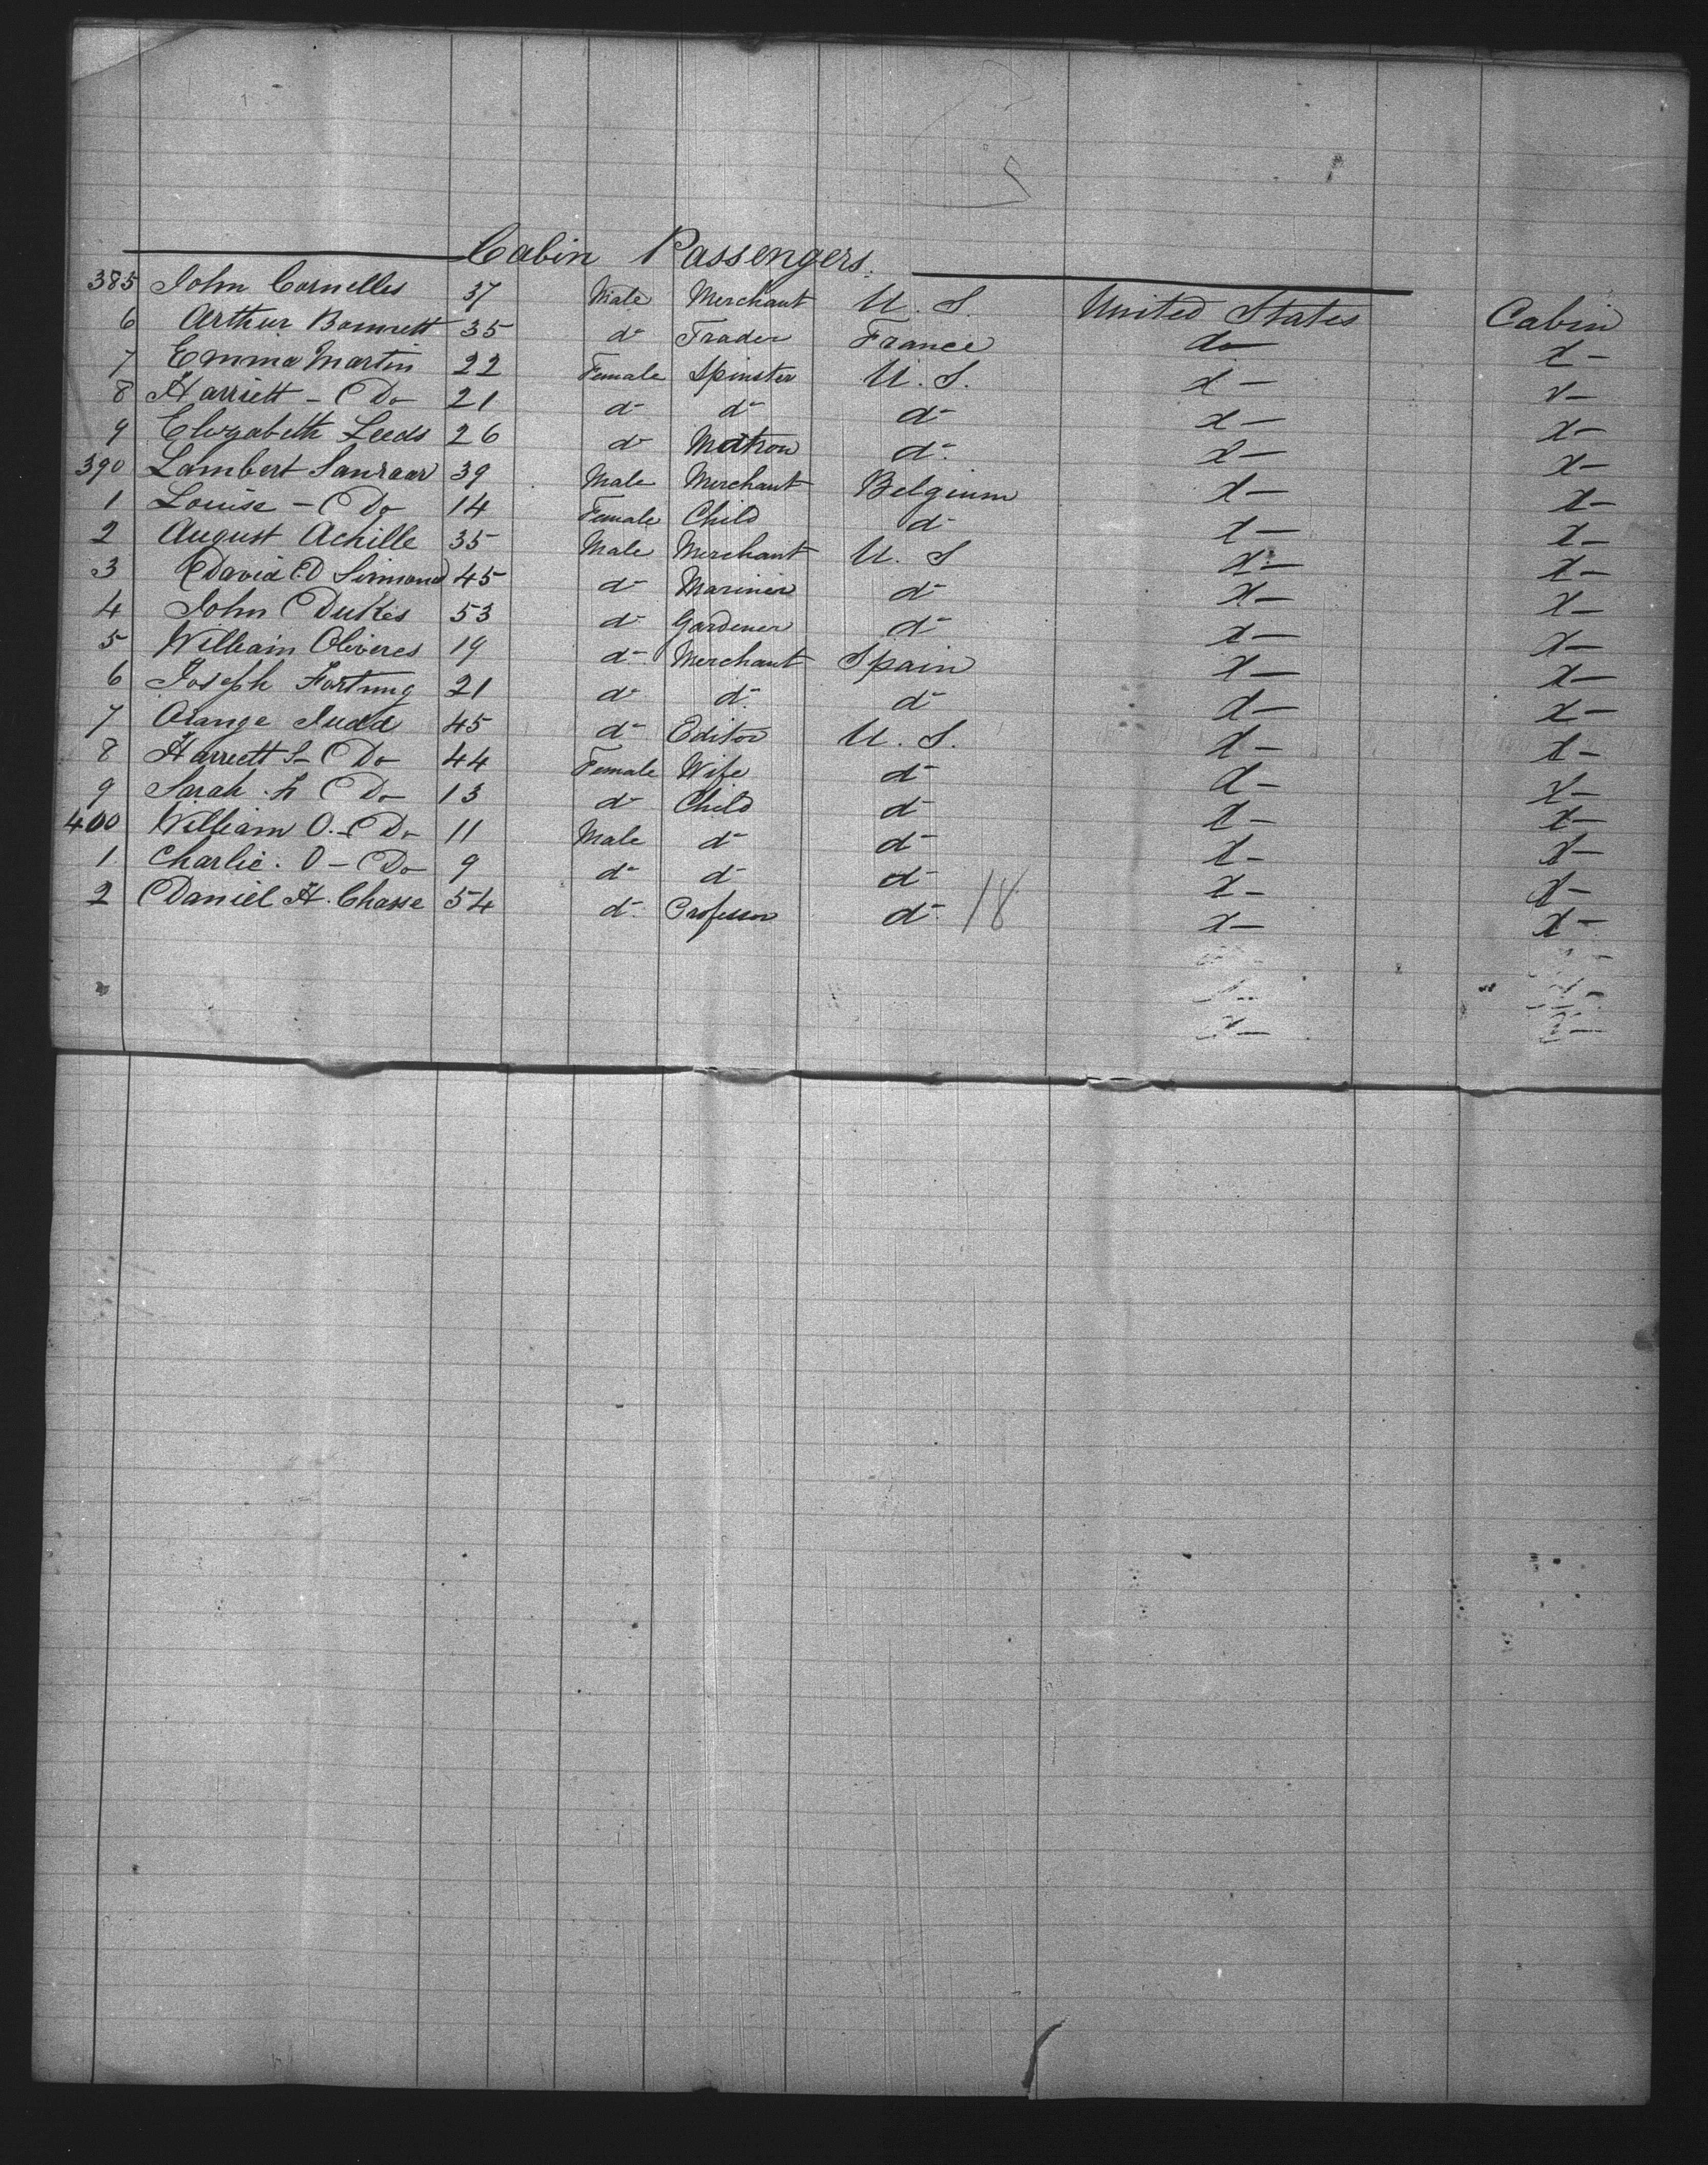 Cabin Passengers.
385 John Cornelles 37 Male Merchant U. S. United States Cabin
6 Arthur Bonnett 35 do Trader France do x-
7 Emma Martin 22 Female Spinster U. S. x- x-
8 Harriett - Do 21 do do do x- x-
9 Elizabeth Leeds 26 do Matron do x- x-
390 Lambert 39 Male Merchant Belgium x- x-
1 Louise - Do 14 Female Child do x- x-
2 August Achille 35 Male Merchant U. S x- x-
3 David D Simmond 45 do Mariner do x- x-
4 John Dukes 53 do Gardener do x- x-
5 William Oliveres 19 do Merchant Spain x- x-
6 Joseph Fortuny 21 do do do x- x-
7 Orange Judd 45 do Editor U. S. x- x-
8 Harriett S- Do 44 Female Wife do x- x-
9 Sarah. Do 13 do Child do x- x-
400 William O. - Do 11 Male do do x- x-
1 Charlie. O - Do 9 do do do x- x-
2 Daniel H. Chasse 54 do Professor do 18 x- x-